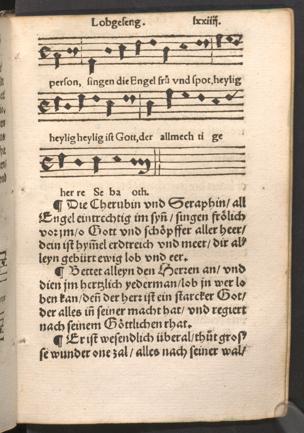 Lobgeseng. lxxiiij.
person, singen die Engel frü vnd spot, heylig
heylig heylig ist Gott, der allmech ti ge
her re Se ba oth.
¶ Die Cherubin vnd Seraphin/ all
Engel eintrechtig im syn̄/ singen frölich
vor jm/ o Gott vnd schöpffer aller heer/
dein ist hym̄el erdtreich vnd meer/ dir al⸗
leyn gebürt ewig lob vnd eer.
¶ Bettet alleyn den Herzen an/ vnd
dien jm hertzlich yederman/ lob in wer lo
ben kan/ den̄ der herr ist ein starcker Got/
der alles in̄ seiner macht hat/ vnd regiert
nach seinem Göttlichen rhat.
¶ Er ist wesendlich überal/ thüt gros⸗
se wunder one zal/ alles nach seiner wal/